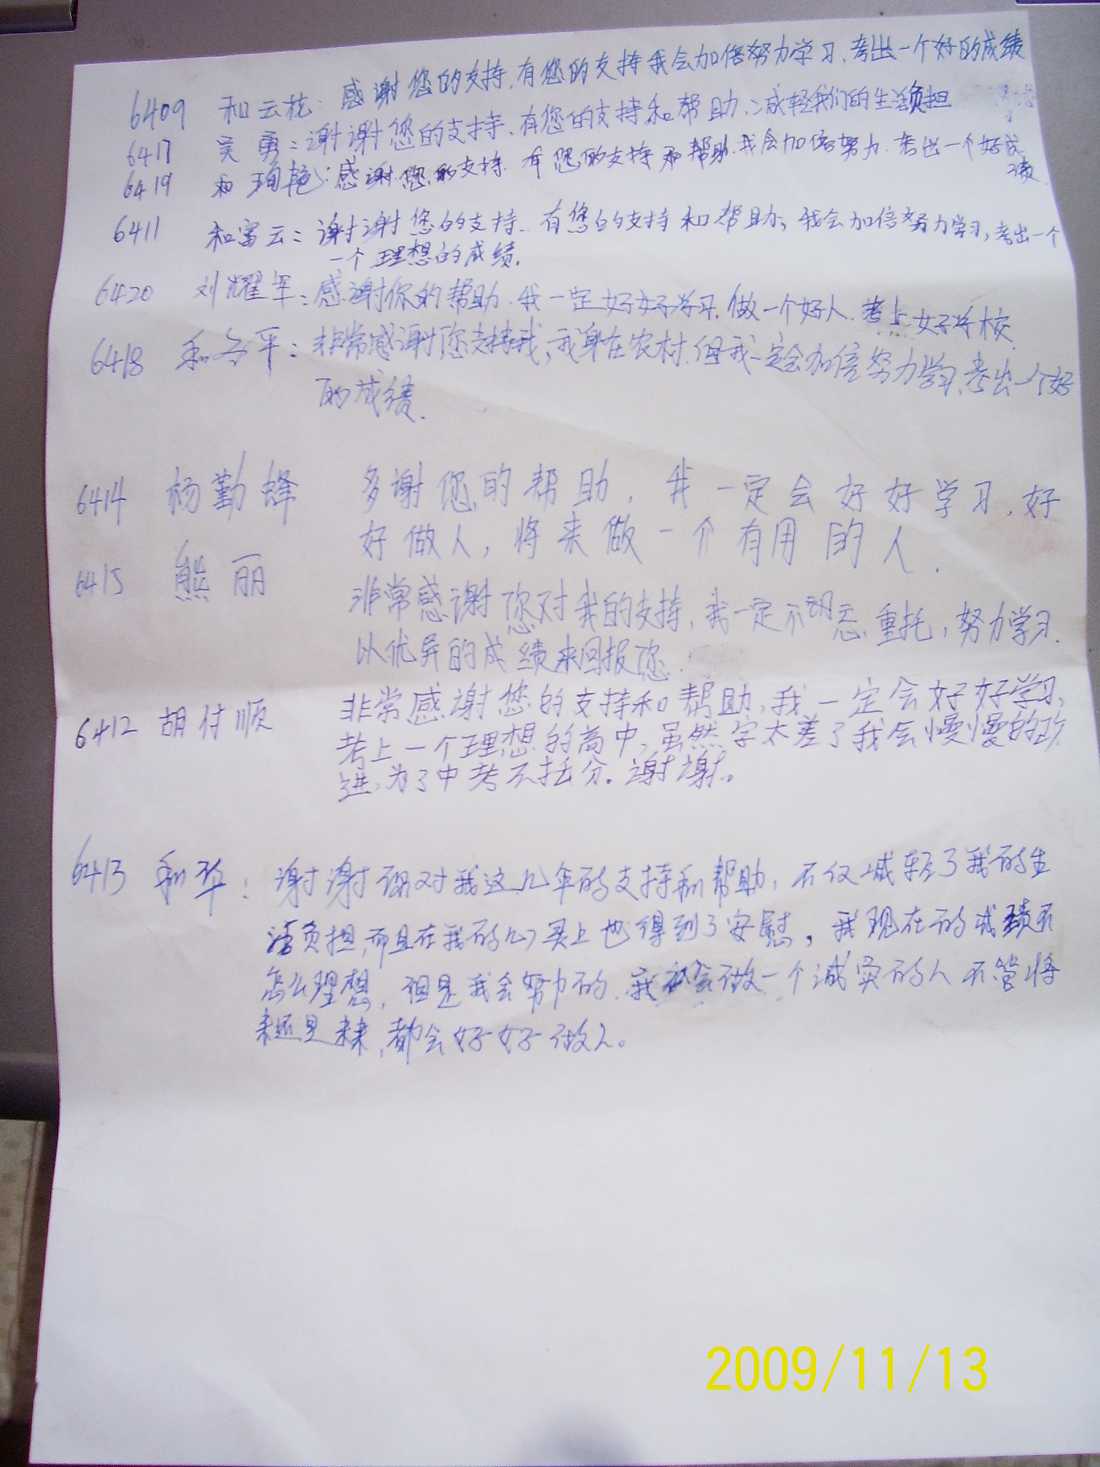 6409 和云花：感谢您的支持，有您的支持我会加倍努力学习，考出一个好的成绩
6417 吴勇：谢谢您的支持，有您的支持和帮助，减轻我们的生活负担
6419 和 艳：感谢您的支持，有您的支持和帮助我会加倍努力，考出一个好成
绩
6411 和富云：谢谢您的支持，有您的支持和帮助，我会加倍努力学习，考出一个
一个理想的成绩。
6420 刘耀军：感谢你的帮助，我一定好好学习，做一个好人，考上好学校
6418 和 平：非常感谢您支持我，我身在农村，但我一定会加倍努力学习，考出一个好
的成绩.
6414 杨勤蜂 多谢您的帮助，我一定会好好学习，好
好做人，将来做一个有用的人.
6415 熊丽 非常感谢您对我的支持，我一定不 忘重托，努力学习.
以优异的成绩来回报您.
6412 胡付顺 非常感谢您的支持和帮助，我一定会好好学习，
考上一个理想的高中，虽然字太差了我会慢慢的改
进，为了中考不扣分。谢谢。
6413 和华：谢谢您对我这几年的支持和帮助，不仅减轻了我的生
活负担，而且在我的心灵上也得到了安慰，我现在的成绩不
怎么理想，但是我会努力的，我 会做一个诚实的人不管将
来还是未来，都会好好做人。
2009/11/13